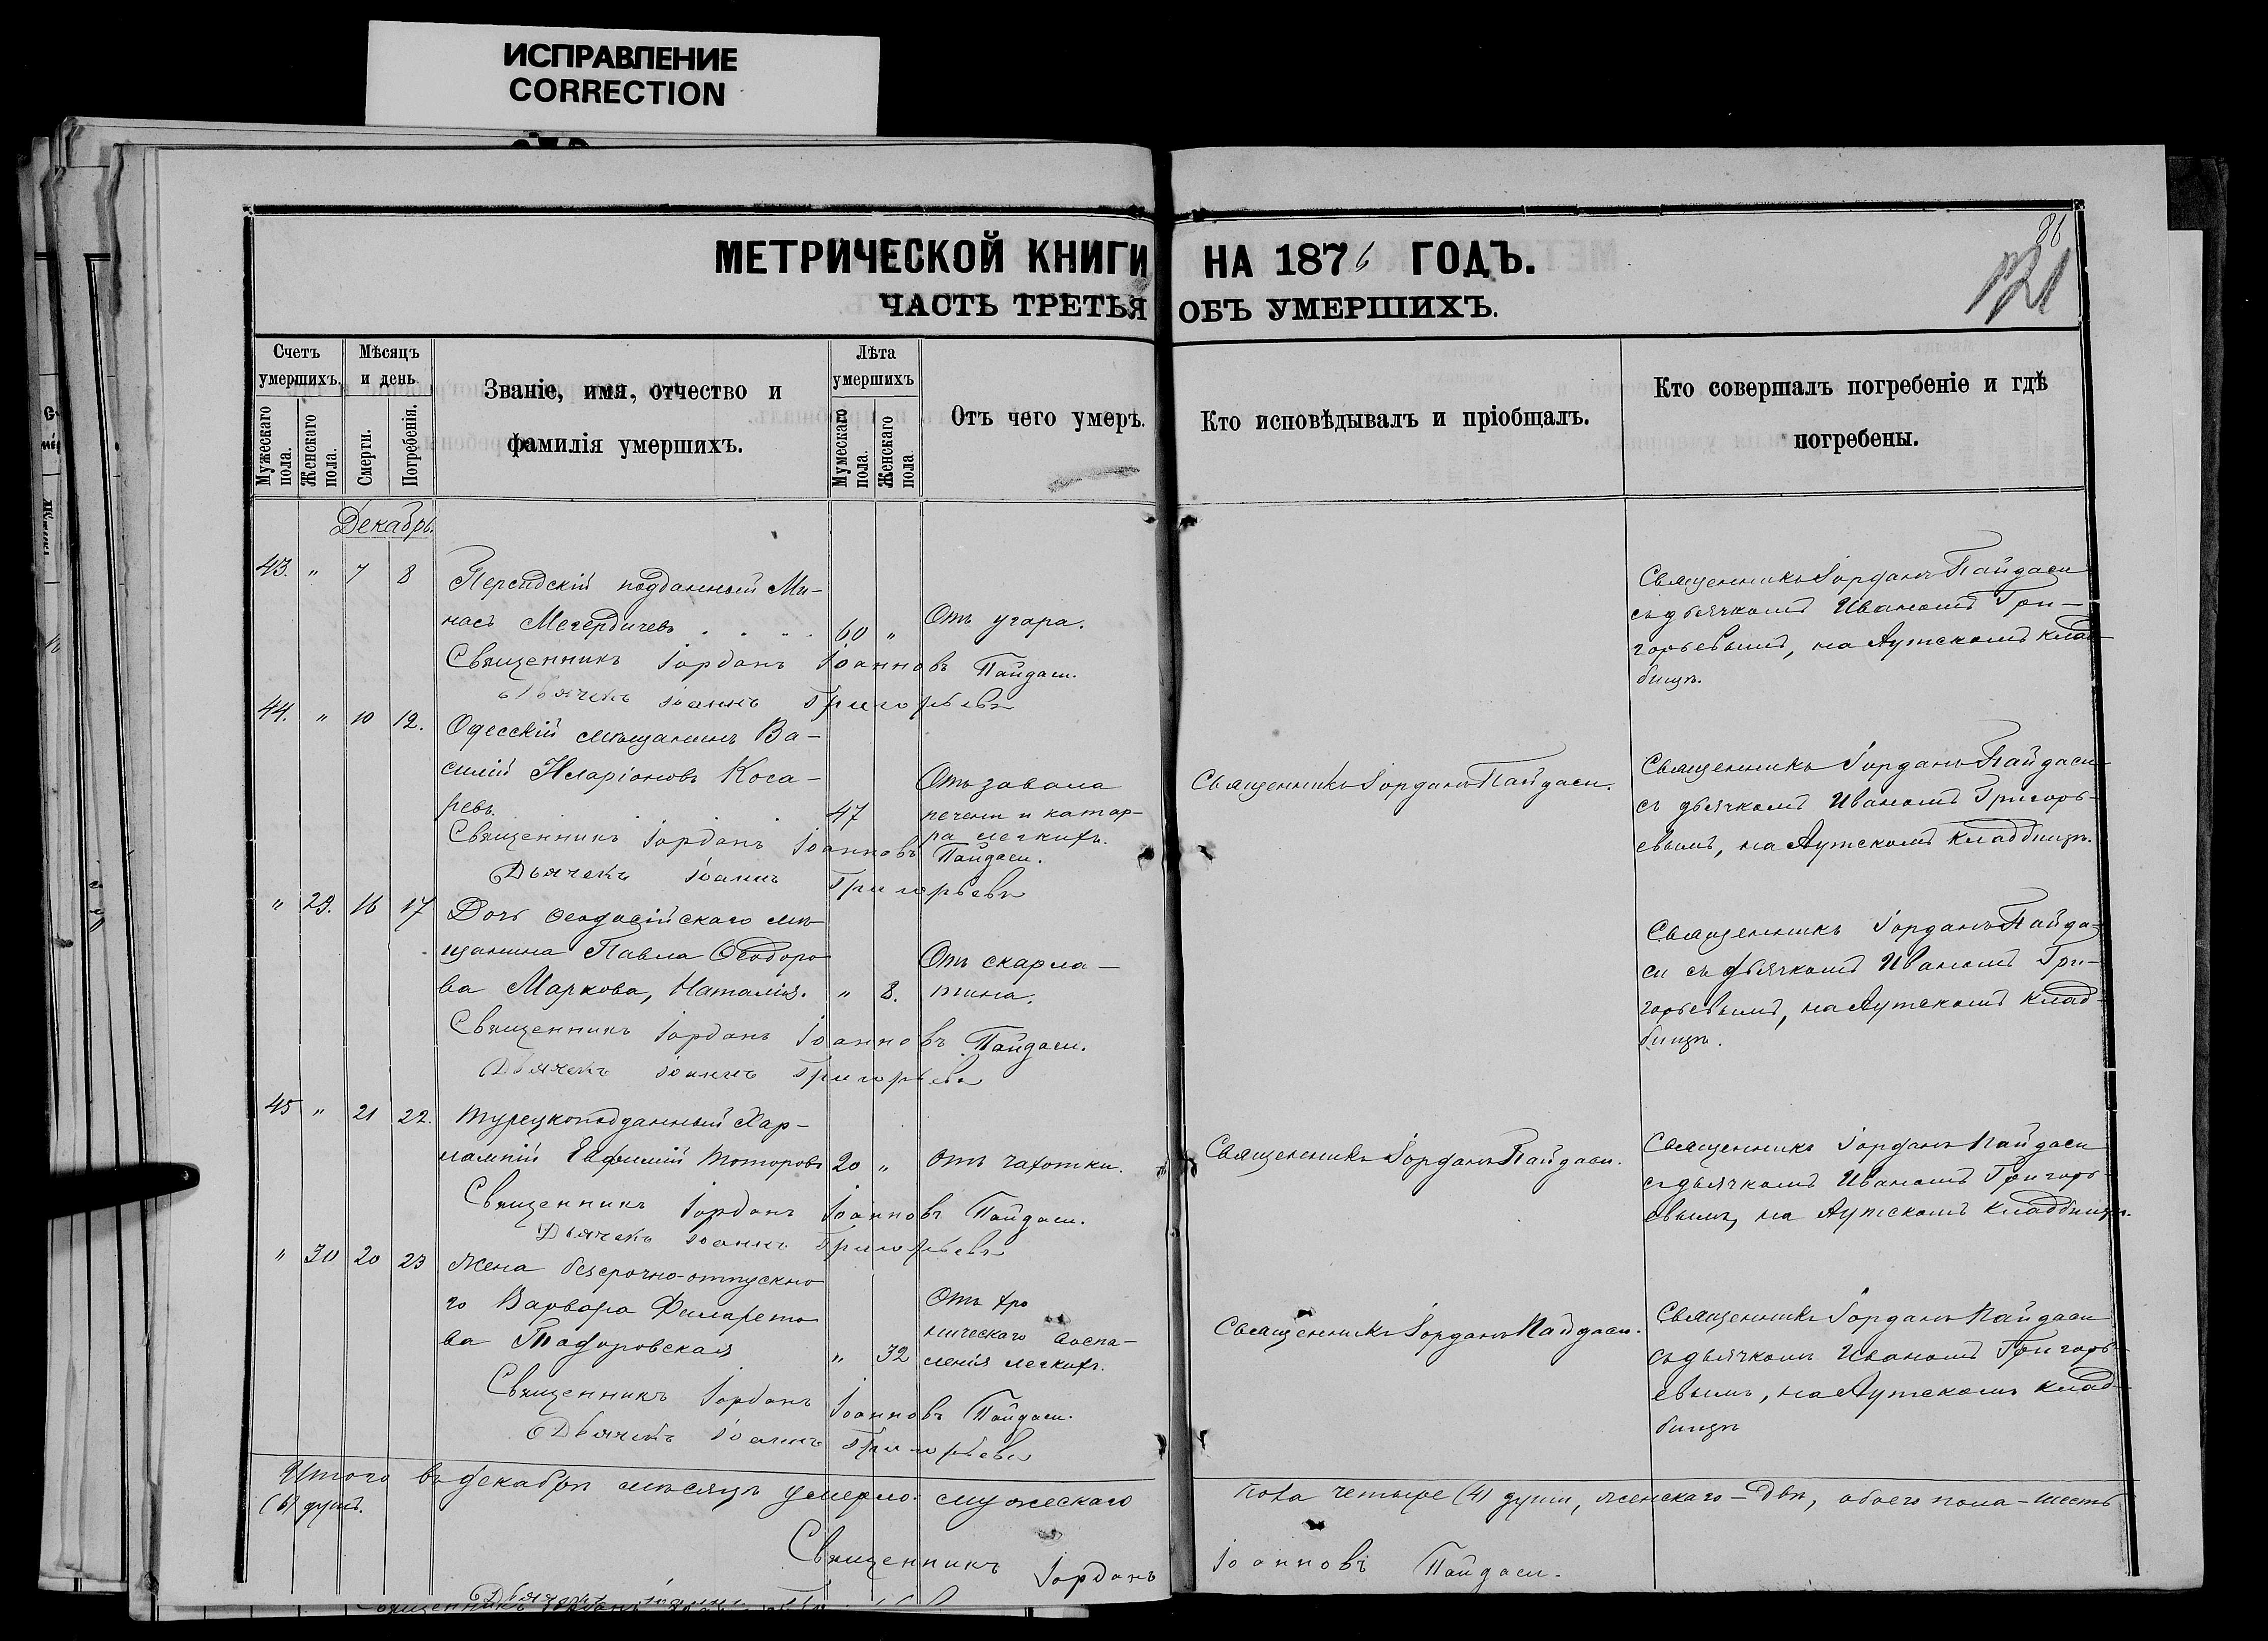 ИСПРАВЛЕНИЕ
CORRECTION
МЕТРИЧЕСКОЙ КНИГИ НА 1876 ГОДЪ.
ЧАСТЬ ТРЕТЬЯ ОБЪ УМЕРШИХЪ.
86
121
Счетъ умершихъ.
Мужескаго пола.
Женскаго пола.
Мѣсяцъ и день
Смерти.
Погребенія.
Званіе, имя, отчество и
фамилія умершихъ.
Лѣта умершихъ
Мумескаго пола.
Женскаго пола.
Отъ чего умеръ.
Кто исповѣдывалъ и пріобщалъ.
Кто совершалъ погребеніе и гдѣ
погребены.
Декабрь.
43. " 7 8
Персидскій подданный Ми-
насъ Мегердичевъ . . . . 60 " Отъ угара.
Священникъ Іорданъ Пайдаси
съ дьячкомъ Иваномъ Гри-
горьевымъ, на Аутскомъ клад-
бищѣ.
Священникъ Іорданъ Іоанновъ Пайдаси.
Дьячекъ Іоаннъ Григорьевъ
44. " 10 12.
Одесскій мѣщанинъ Ва-
силій Иларіоновъ Коса-
ревъ. 47
Отъ завала
печени и катар-
ра легкихъ.
Священникъ Іорданъ Пайдаси.
Священникъ Іорданъ Пайдаси
съ дьячкомъ Иваномъ Григорь-
евымъ, на Аутскомъ кладбищѣ.
Священникъ Іорданъ Іоанновъ Пайдаси.
Дьячекъ Іоаннъ Григорьевъ
" 29. 16 17
Дочь Ѳеодосійскаго мѣ-
щанина Павла Ѳеодоро-
ва Маркова, Наталія. " 8.
Отъ скарла-
тина.
Священникъ Іорданъ Пайда-
си съ дьячкомъ Иваномъ Гри-
горьевымъ, на Аутскомъ клад-
бищѣ.
Священникъ Іорданъ Іоанновъ Пайдаси.
Дьячекъ Іоаннъ Григорьевъ
45 " 21 22.
Турецкоподданный Хар-
лампій Евфимій 20 " Отъ чахотки.
Священникъ Іорданъ Пайдаси.
Священникъ Іорданъ Пайдаси
съ дьячкомъ Иваномъ Григорь-
евымъ, на Аутскомъ кладбищѣ.
Священникъ Іорданъ Іоанновъ Пайдаси.
Дьячекъ Іоаннъ Григорьевъ
" 30 20 23
Жена безсрочно-отпускно-
го Варвара Филарето-
ва " 32
Отъ хро
ническаго воспа-
ленія легкихъ.
Священникъ Іорданъ Пайдаси.
Священникъ Іорданъ Пайдаси
съ дьячкомъ Иваномъ Григорь-
евымъ, на Аутскомъ клад-
бищѣ
Священникъ Іорданъ Іоанновъ Пайдаси.
Дьячекъ Іоаннъ Григорьевъ
Итого въ декабрѣ мѣсяцѣ умерло: мужескаго пола четыре (4) души, женскаго - двѣ, обоего пола - шесть
(6) душъ.
Священникъ Іорданъ Іоанновъ Пайдаси.
Дьячекъ Іоаннъ